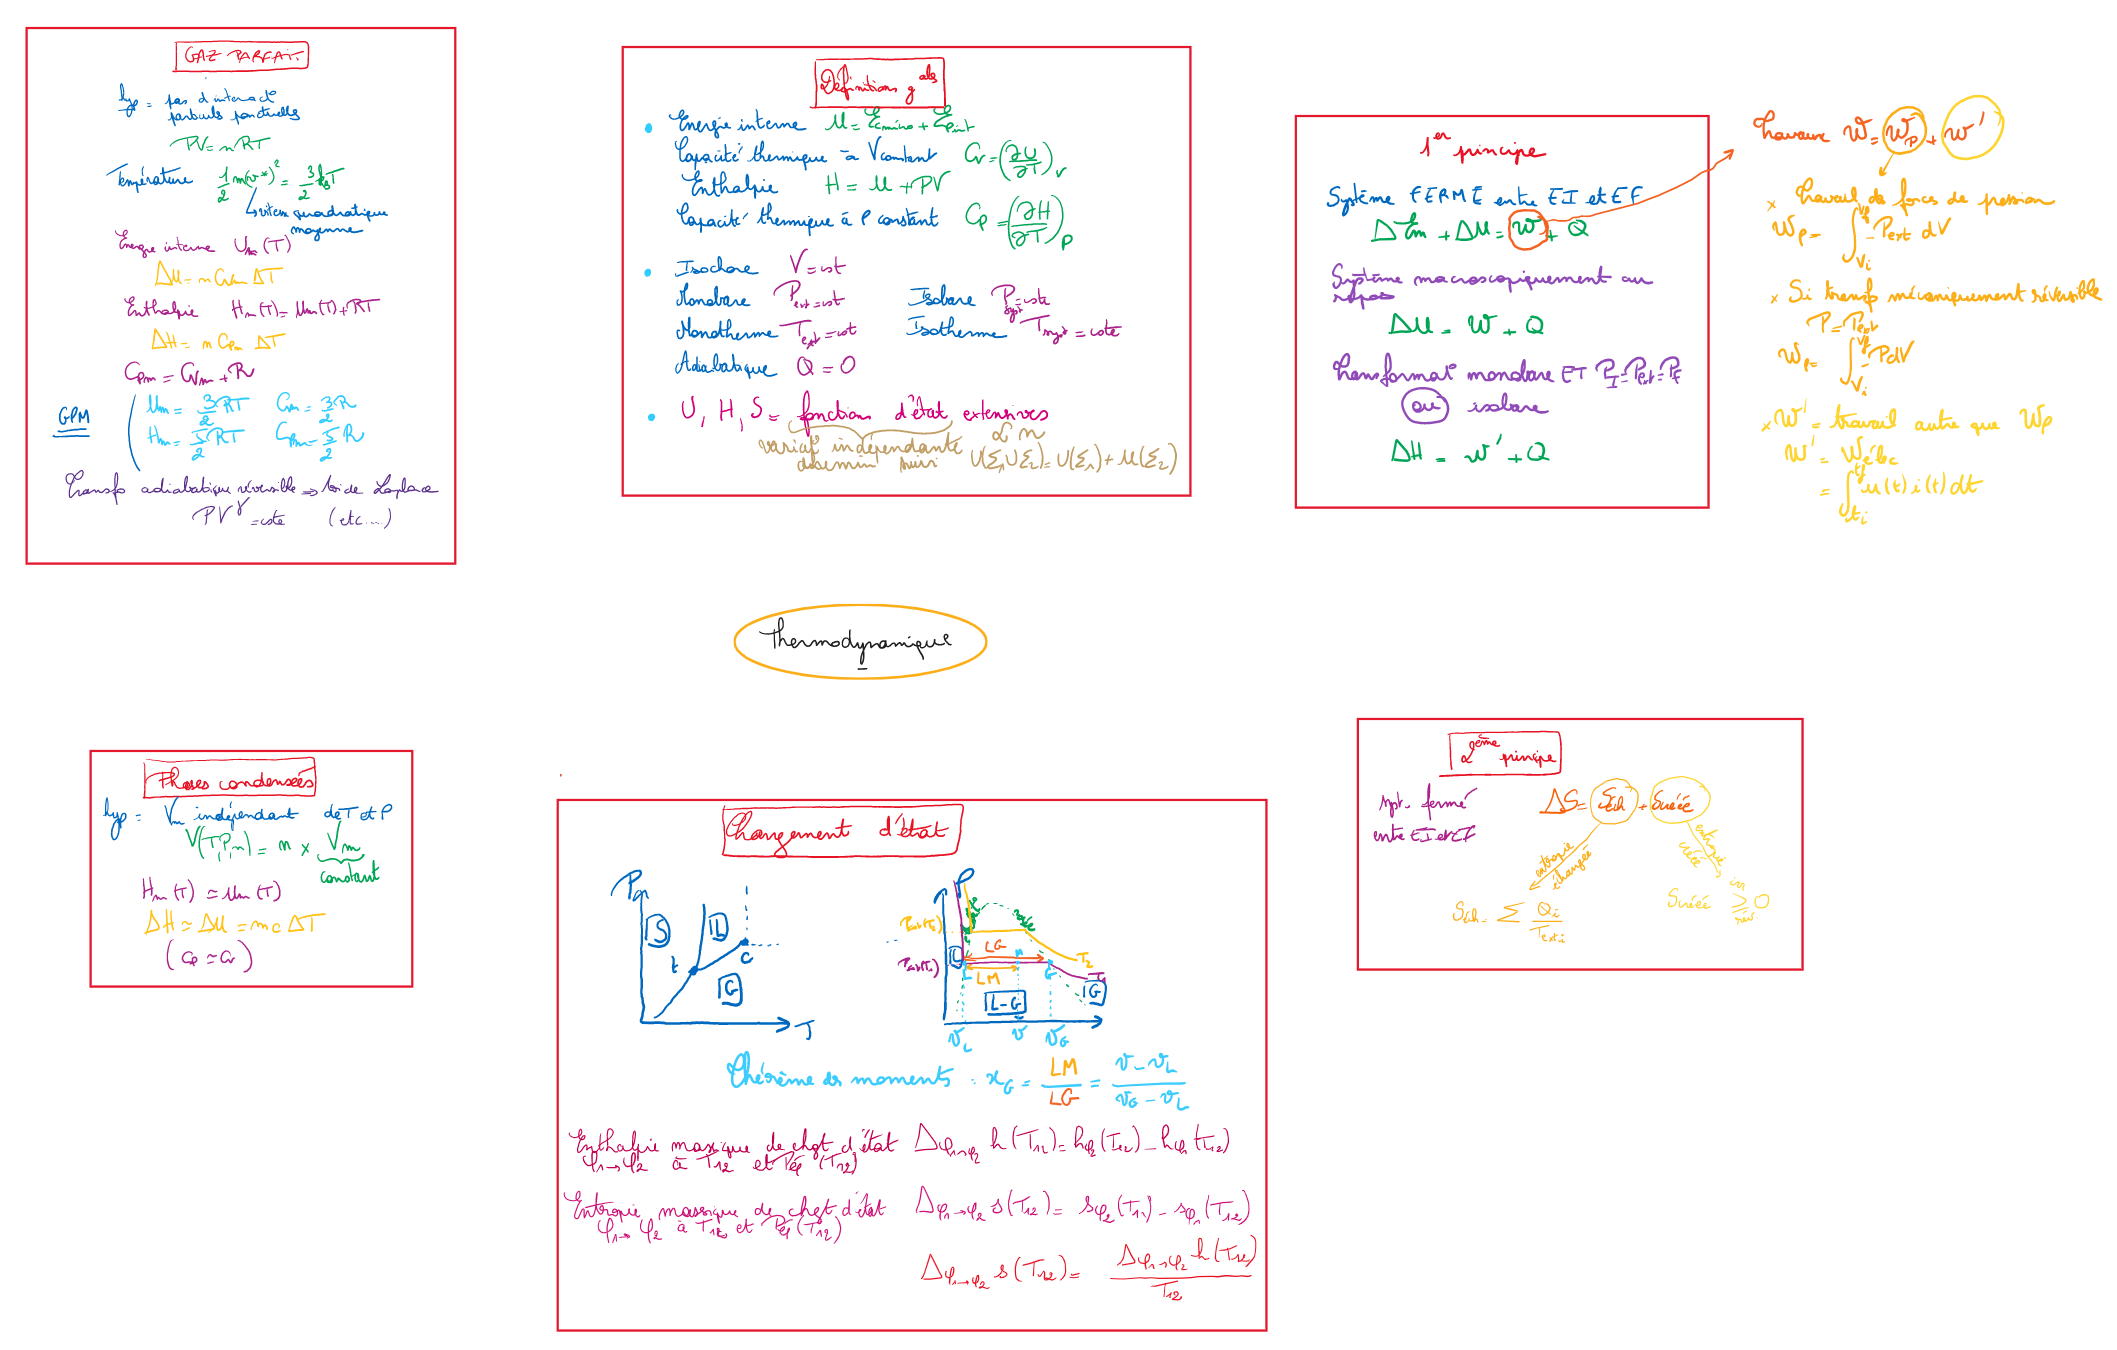 GAZ PARFAIT
hyp = pas d'interact°
particules ponctuelles
PV = nRT
Température 1/2 m(v*)² = 3/2 k_B T
↳ vitesse quadratique
moyenne
Energie interne U_m(T)
ΔU = n C_Vm ΔT
Enthalpie H_m(T) = U_m(T) + RT
ΔH = n C_Pm ΔT
C_Pm = C_Vm + R
GPM
U_m = 3/2 RT C_Vm = 3/2 R
H_m = 5/2 RT C_Pm = 5/2 R
Transfo adiabatique réversible ⇒ loi de Laplace
PV^γ = cste (etc....)
Définitions g^ales
• Energie interne U = E_c micro + E_p int
Capacité thermique à V constant C_V = (∂U/∂T)_V
Enthalpie H = U + PV
Capacité thermique à P constant C_P = (∂H/∂T)_P
• Isochore V = cst
Monobare P_ext = cst Isobare P_syst = cste
Monotherme T_ext = cst Isotherme T_syst = cste
Adiabatique Q = 0
• U, H, S = fonctions d'état extensives
variat° indépendante α n
du chemin suivi U(Σ₁UΣ₂) = U(Σ₁) + U(Σ₂)
1er principe
Système FERMÉ entre EI et EF
ΔE_m + ΔU = W + Q
Système macroscopiquement au
repos
ΔU = W + Q
Transformat° monobare ET P_I = P_ext = P_F
ou isobare
ΔH = W' + Q
Travaux W = W_P + W'
× Travail des forces de pression
W_P = ∫_{V_i}^{V_f} -P_ext dV
× Si transfo mécaniquement réversible
P = P_ext
W_P = ∫_{V_i}^{V_f} -PdV
× W' = travail autre que W_P
W' = W_élec
= ∫_{t_i}^{t_f} u(t) i(t) dt
Thermodynamique
Phases condensées
hyp = V_m indépendant de T et P
V(T,P,n) = n × V_m
constant
H_m(T) ≃ U_m(T)
ΔH ≃ ΔU = mcΔT
(C_P ≃ C_V)
Changement d'état
P
S
L
t
C
G
T
P
P_sat(T_2)
P_sat(T_1)
L
LG
LM
L
M
G
T_2
T_1
G
L-G
v_L v v_G
Théorème des moments : x_G = LM/LG = (v - v_L)/(v_G - v_L)
Enthalpie massique de chgt d'état Δ_φ1→φ2 h(T_12) = h_φ2(T_12) - h_φ1(T_12)
φ1→φ2 à T_12 et P_éq(T_12)
Entropie massique de chgt d'état Δ_φ1→φ2 s(T_12) = s_φ2(T_12) - s_φ1(T_12)
φ1→φ2 à T_12 et P_éq(T_12)
Δ_φ1→φ2 s(T_12) = Δ_φ1→φ2 h(T_12)/T_12
2ème principe
syst. fermé
entre EI et EF
ΔS = S_éch + S_créée
entropie
échangée
entropie
créée
S_éch = Σ Q_i/T_ext i
S_créée ≥ 0
irr
rév.